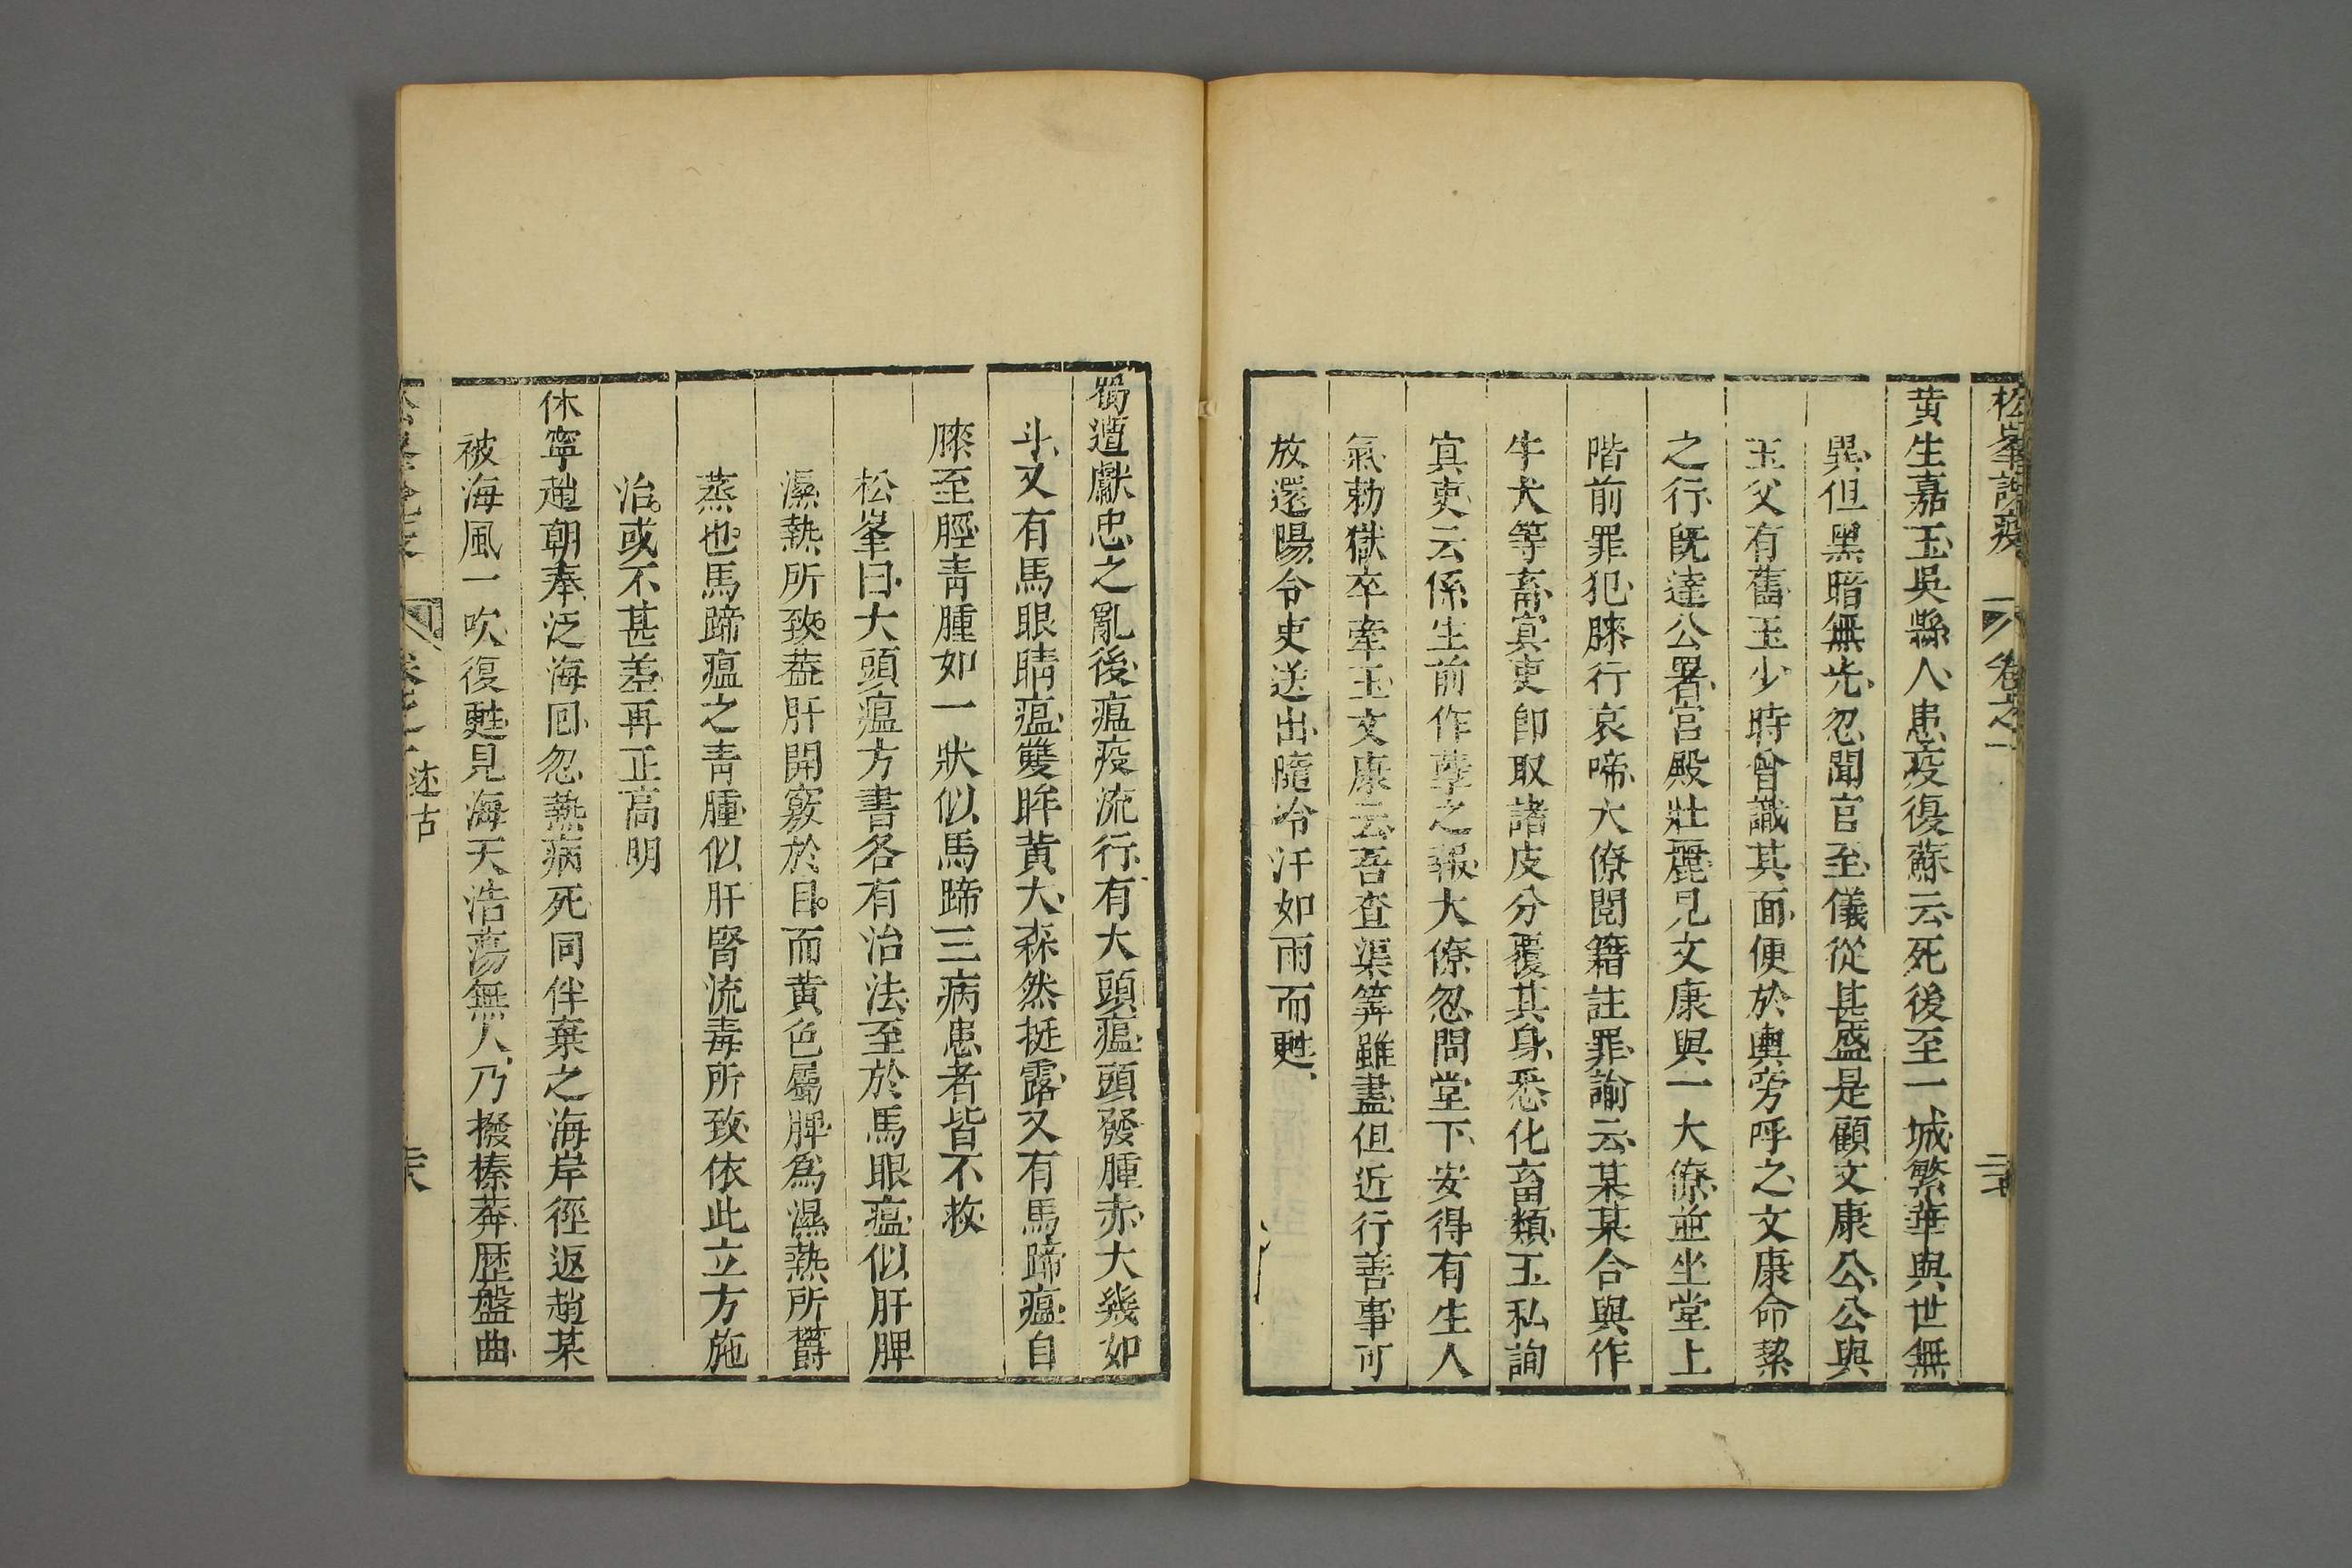 松峯說疫 卷之一
黃生嘉玉吳縣人患疫復蘇云死後至一城繁華與世無
異但黑暗無光忽聞官至儀從甚盛是顧文康公公與
玉父有舊玉少時曾識其面便於輿旁呼之文康命挈
之行旣達公署宮殿壯麗見文康與一大僚並坐堂上
階前罪犯膝行哀啼大僚閱籍註罪諭云某某合與作
牛犬等畜冥吏卽取諸皮分覆其身悉化畜類玉私詢
冥吏云係生前作孽之報大僚忽問堂下安得有生人
氣勅獄卒牽玉文康云吾查渠筭雖盡但近行善事可
放還陽令吏送出隨冷汗如雨而甦
蜀遭獻忠之亂後瘟疫流行有大頭瘟頭發腫赤大幾如
斗又有馬眼睛瘟雙眸黃大森然挺露又有馬蹄瘟自
膝至脛靑腫如一狀似馬蹄三病患者皆不救
松峯曰大頭瘟方書各有治法至於馬眼瘟似肝脾
濕熱所致葢肝開竅於目而黃色屬脾爲濕熱所欝
蒸也馬蹄瘟之靑腫似肝腎流毒所致依此立方施
治或不甚差再正高明
休寧趙朝奉泛海囘忽熱病死同伴棄之海岸徑返趙某
被海風一吹復甦見海天浩蕩無人乃撥榛莽歷盤曲
卷之一 述古